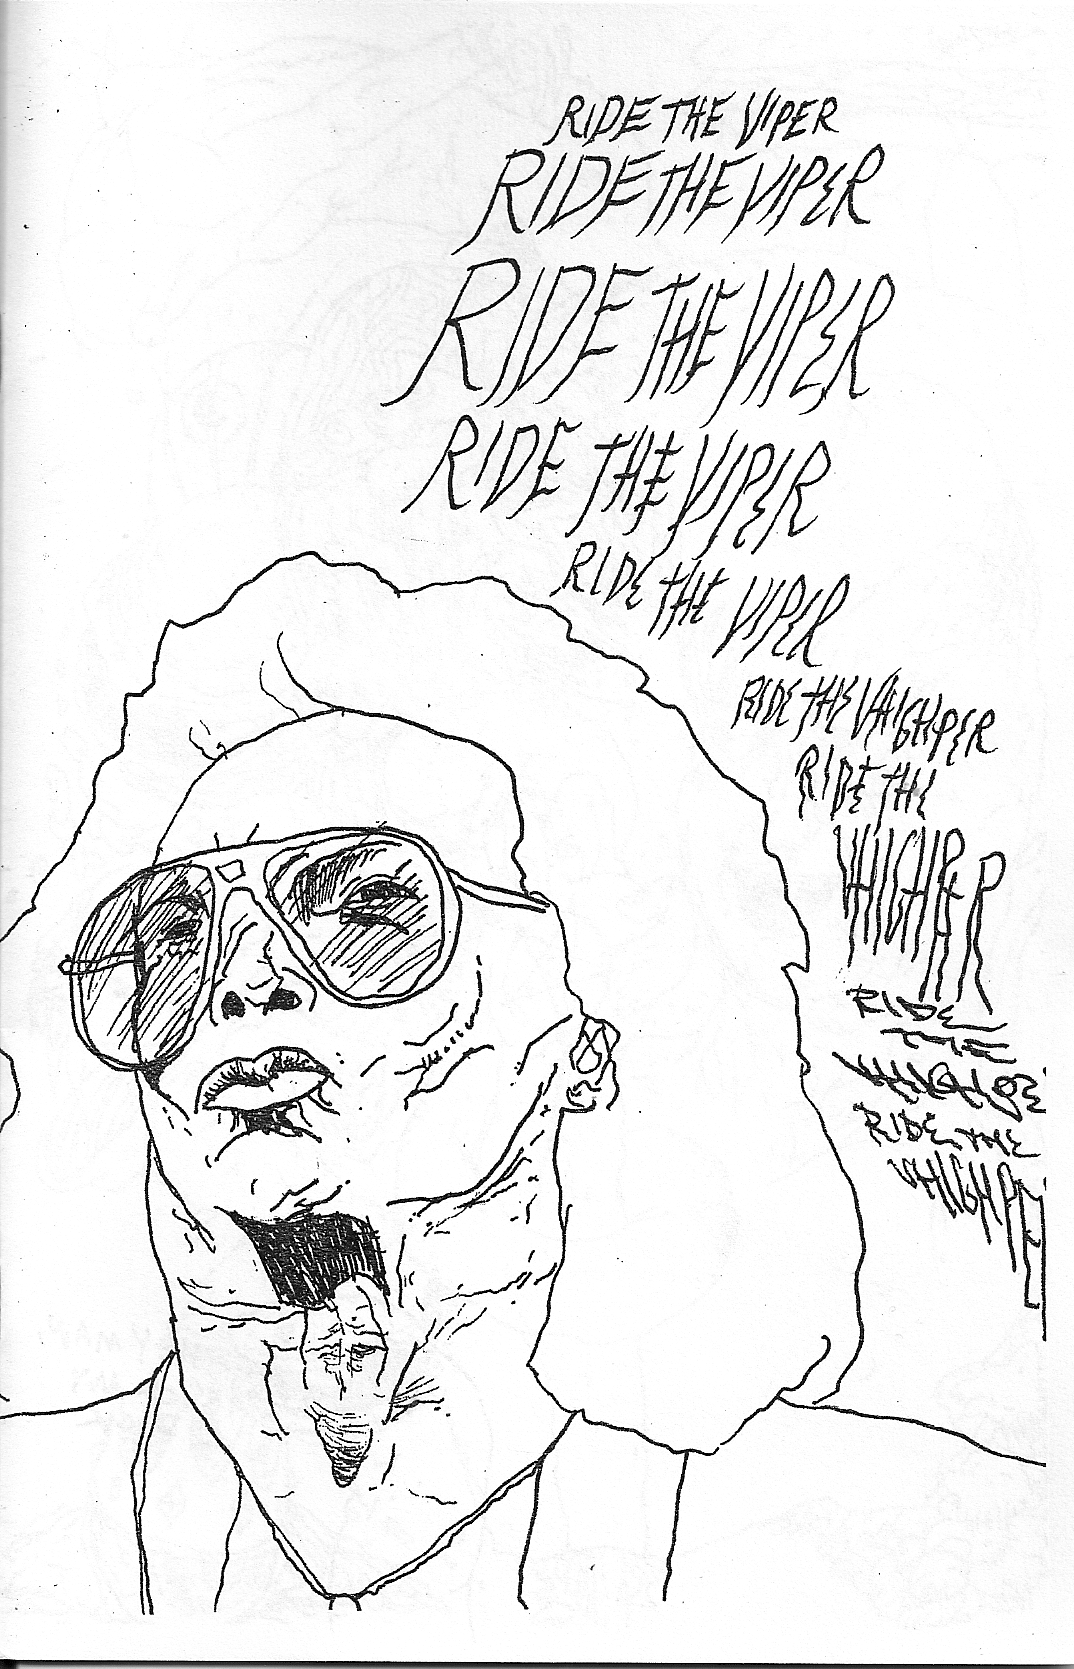 RIDE THE VIPER
RIDE THE VIPER
RIDE THE VIPER
RIDE THE VIPER
RIDE THE VIPER
RIDE THE VAIGHPER
RIDE THE
VAIGHPER
RIDE
THE
RIDE THE
VAIGHPER